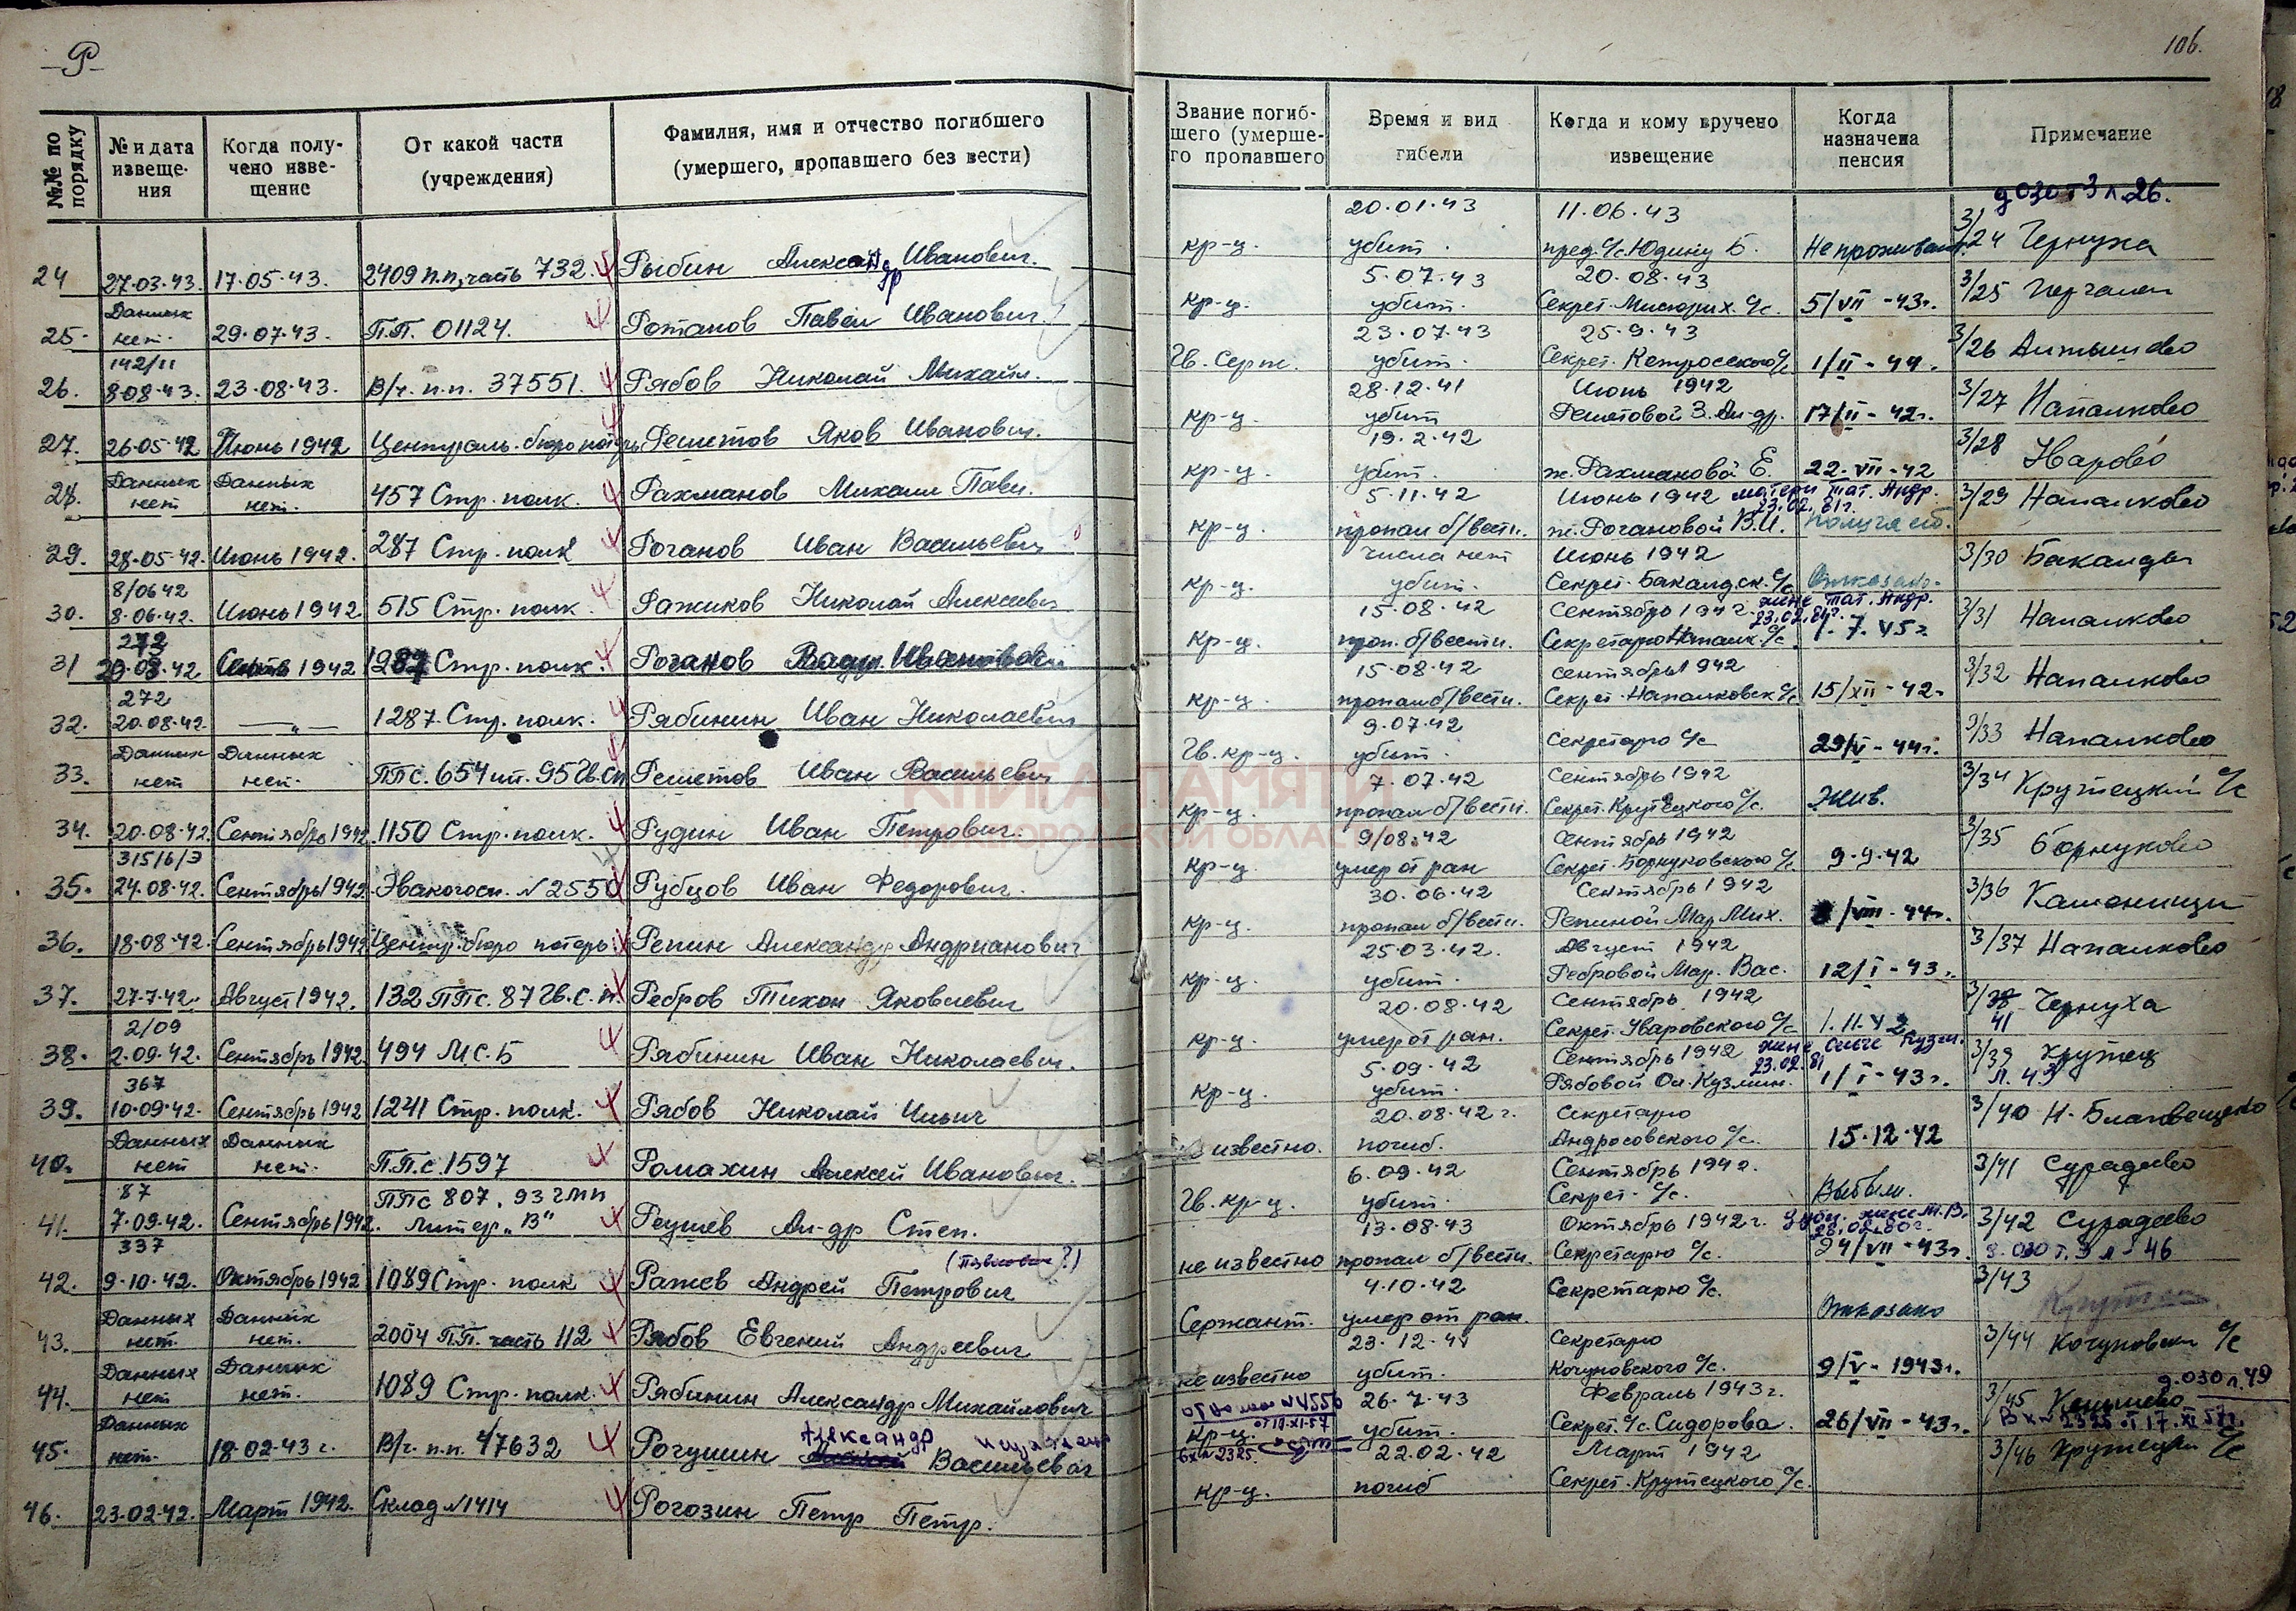 Р
106.
№№ по порядку
№ и дата извеще-ния
Когда полу-чено изве-щение
От какой части (учреждения)
Фамилия, имя и отчество погибшего (умершего, пропавшего без вести)
Звание погиб-шего (умерше-го пропавшего
Время и вид гибели
Когда и кому вручено извещение
Когда назначена пенсия
Примечание
24 27.03.43. 17.05.43. 2409 п.п, часть 732. Рыбин Александр Иванович. кр-ц. 20.01.43 убит. 11.06.43 пред. с/с Юдину Б. Не проживает. 3/24 Чернуха
25. Данных нет. 29.07.43. П.П. 01124. Ротанов Павел Иванович. кр-ц. 5.07.43 убит. 20.08.43 Секрет. с/с. 5/VII-43г. 3/25
26. 142/11 8.08.43. 23.08.43. В/ч. п.п. 37551. Рябов Николай Михайл. Гв. Серж. 23.07.43 убит. 25.9.43 Секрет. с/с 1/II-44. 3/26
27. 26.05.42 Июнь 1942 Централь. бюро потерь Решетов Яков Иванович. кр-ц. 28.12.41 убит Июнь 1942 Решетовой З. Ал-др. 17/II-42г. 3/27 Напалково
28. Данных нет Данных нет. 457 Стр. полк. Рахманов Михаил Павл. кр-ц. 19.2.42 убит. ж. Рахмановой Е. 22.VII-42 3/28 Уварово
29. 28.05.42. Июнь 1942. 287 Стр. полк Роганов Иван Васильевич кр-ц. 5.11.42 пропал б/вести. Июнь 1942 ж. Рогановой В.И. матери Тат. Андр. 23.02.81г. 3/29 Напалково
30. 8/0642 8.06.42. Июнь 1942 515 Стр. полк. Ражиков Николай Алексеевич кр-ц. числа нет убит. Июнь 1942 Секрет. Бакалдск. с/с Отказано. 3/30 Бакалды
31 272 20.08.42 1942 1287 Стр. полк. Роганов кр-ц. 15.08.42 проп. б/вести. Сентябрь 1942 Секретарю Напалк. с/с. жене Тат. Андр. 23.02.81г. 1.7.45г 3/31 Напалково
32. 272 20.08.42. —"— 1287 Стр. полк. Рябинин Иван Николаевич кр-ц. 15.08.42 пропал б/вести. сентябрь 1942 Секрет. Напалковск с/с 15/XII-42. 3/32 Напалково
33. Данных нет Данных нет. ППс. 654 шт. 95 Гв. сп Решетов Иван Васильевич Гв. кр-ц. 9.07.42 убит. Секретарю с/с 29/V-44г. 3/33 Напалково
34. 20.08.42. Сентябрь 1942. 1150 Стр. полк. Рудин Иван Петрович. кр-ц. 7.07.42 пропал б/вести. Сентябрь 1942 Секрет. Крутецкого с/с. Жив. 3/34 Крутецкий с/с
35. 315/6/Э 24.08.42. Сентябрь 1942. Эвакогосп. №2550 Рубцов Иван Федорович. кр-ц. 9/08.42 умер от ран Сентябрь 1942 Секрет. Борнуковского с/с. 9.9.42 3/35 Борнуково
36. 18.08.42. Сентябрь 1942 Центр. бюро потерь Репин Александр Андрианович кр-ц. 30.06.42 пропал б/вести. Сентябрь 1942 Репиной Мар. Мих. /VIII-44г. 3/36 Каменищи
37. 27.7.42. Август 1942. 132 ППс. 87 Гв. с.п. Ребров Тихон Яковлевич кр-ц. 25.03.42. убит. Август 1942 Ребровой Мар. Вас. 12/I-43г. 3/37 Напалково
38. 2/09 2.09.42. Сентябрь 1942. 494 М.С.Б Рябинин Иван Николаевич. кр-ц. 20.08.42 умер от ран. Сентябрь 1942 Секрет. Уваровского с/с 1.11.42 3/38 41 Чернуха
39. 367 10.09.42. Сентябрь 1942 1241 Стр. полк. Рябов Николай Ильич кр-ц. 5.09.42 убит. Сентябрь 1942 Рябовой Ол. Кузмин. жене Ольге Кузм. 23.02.81 1/I-43г. 3/39 Крутец Л. 43
40. Данных нет Данных нет. П.П.с. 1597 Ромахин Алексей Иванович. не известно. 20.08.42 г. погиб. Секретарю Андросовского с/с. 15.12.42 3/40 Н-Благовещенско
41. 87 7.09.42. Сентябрь 1942. ППс 807. 93 гмп литер „В" Реушев Ал-др Степ. Гв. кр-ц. 6.09.42 убит. Сентябрь 1942. Секрет. с/с. Выбыли. 3/41 Сурадеево
42. 337 9.10.42. Октябрь 1942 1089 Стр. полк Ражев Андрей Петрович (Павлович?) не известно 13.08.43 пропал б/вести. Октябрь 1942г. Секретарю с/с. жене М.В. 28.02.80г. 24/VII-43г. 3/42 Сурадеево д.030 т.3 л-46
43. Данных нет. Данных нет. 2004 П.П. часть 112 Рябов Евгений Андреевич Сержант. 4.10.42 умер от ран. Секретарю с/с. Отказано 3/43 Крутец
44. Данных нет Данных нет. 1089 Стр. полк. Рябинин Александр Михайлович не известно 23.12.4 убит. Секретарю Кочуновского с/с. 9/V-1943г. 3/44 Кочуновски с/с
45. Данных нет. 18.02.43 г. В/ч. п.п. 47632 Рогушин Александр Васильевич кр-ц. от 19.XI-57 Вх № 2325 26.7.43 убит. Февраль 1943г. Секрет. с/с. Сидорова. 26/VII-43г. 3/45 д.030 л.49 Вх № 2325 от 17.XI 57г.
46. 23.02.42. Март 1942. Склад №1414 Рогозин Петр Петр. кр-ц. 22.02.42 погиб Март 1942 Секрет. Крутецкого с/с. 3/46 Крутецки с/с
д030 т3 л.26.
КНИГА ПАМЯТИ
НИЖЕГОРОДСКОЙ ОБЛАСТИ